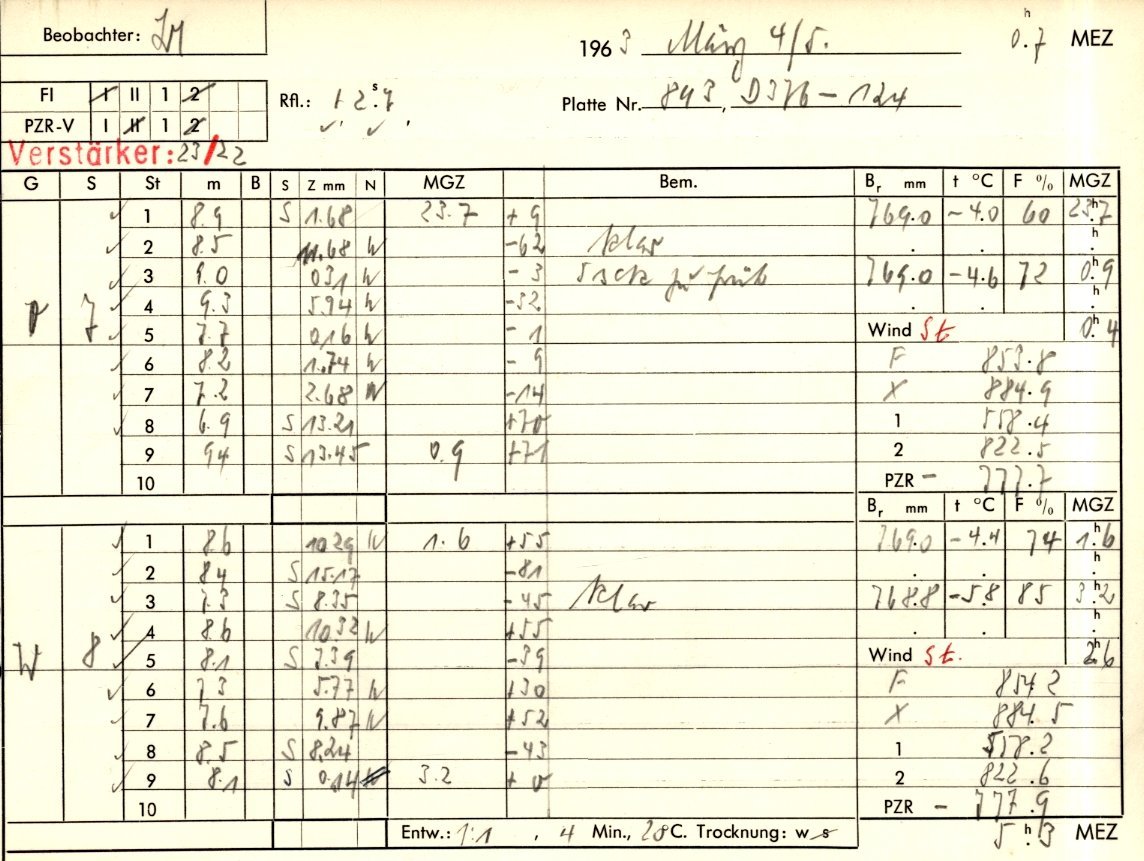 Beobachter:
1963 März 4/5. 0.7 h MEZ
FI I II 1 2
PZR-V I II 1 2
Rfl.: 12.7 s
Platte Nr. 843, D376-124
Verstärker: 23/22
G S St m B S Z mm N MGZ Bem. Br mm t °C F % MGZ
1 8.9 S 1.68 23.7 +9 769.0 -4.0 60 23.7 h
2 8.5 11.68 W -62 klar h
3 9.0 031 W -3 zu früh 769.0 -4.6 72 0.9 h
P 7 4 9.3 5.94 W -32 h
5 7.7 0.16 W -1 Wind St 0.4 h
6 8.2 1.74 W -9 F 853.8
7 7.2 2.68 W -14 X 884.9
8 6.9 S 13.21 +70 1 558.4
9 94 S 13.45 0.9 +71 2 822.5
10 PZR - 777.7
Br mm t °C F % MGZ
1 8.6 1029 W 1.6 +55 769.0 -4.4 74 1.6 h
2 84 S 15.17 -81 h
3 7.3 S 8.35 -45 klar 768.8 -5.8 85 3.2 h
4 8.6 10.32 W +55 h
W 8 5 8.1 S 7.39 -39 Wind St. 2.6 h
6 7.3 5.77 W +30 F 854.2
7 7.6 9.87 W +52 X 884.5
8 8.5 S 8.24 -43 1 558.2
9 8.1 S 0.14 3.2 +0 2 822.6
10 PZR - 777.9
Entw.: 1:1, 4 Min., 28C. Trocknung: w s 5 h.3 MEZ